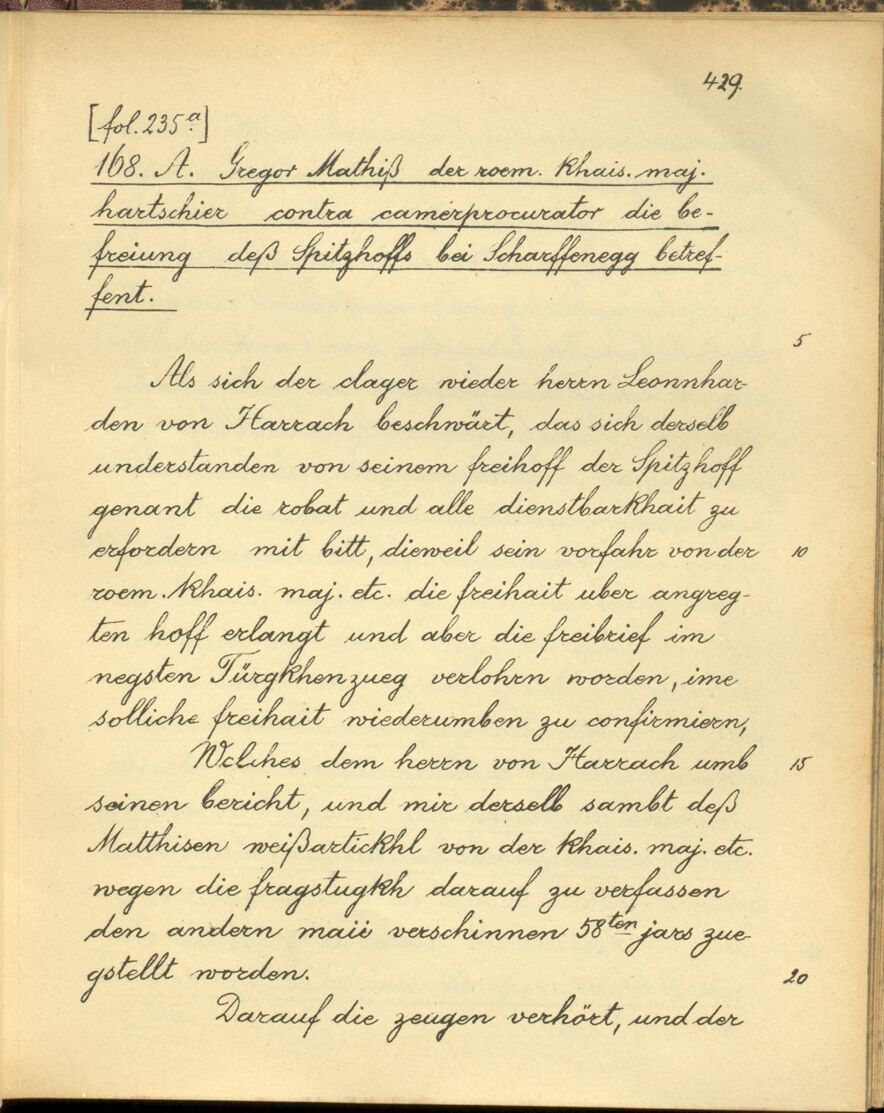 429.
[fol. 235a.]
168. A. Gregor Mathiß der roem. khais. maj.
hartschier contra camerprocurator die be-
freiung deß Spitzhoffs bei Scharffenegg betref-
fent.
5
Als sich der clager wieder herrn Leonnhar-
den von Harrach beschwärt, das sich derselb
understanden von seinem freihoff der Spitzhoff
genant die robat und alle dienstbarkhait zu
erfordern mit bitt, dieweil sein vorfahr von der 10
roem. khais. maj. etc. die freihait uber angreg-
ten hoff erlangt und aber die freibrief im
negsten Türgkhenzueg verlohrn worden, ime
solliche freihait wiederumben zu confirmiern,
Welches dem herrn von Harrach umb 15
seinen bericht, und mir derselb sambt deß
Matthisen weißartickhl von der khais. maj. etc.
wegen die fragstugkh darauf zu verfassen
den andern maii verschinnen 58ten jars zue-
gstellt worden.
20
Darauf die zeugen verhört, und der